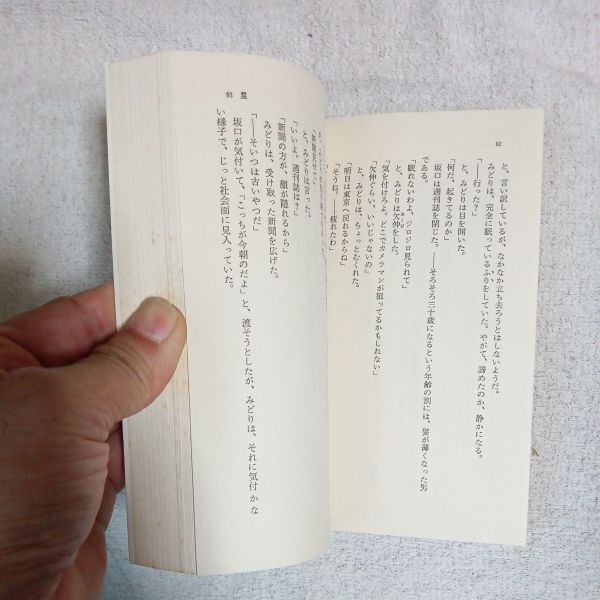 92
と、言い訳しているが、なかなか立ち去ろうとはしないようだ。
みどりは、完全に眠っているふりをしていた。やがて、諦めたのか、静かになる。
「――行った?」
と、みどりは目を開いた。
「何だ、起きてるのか」
坂口は週刊誌を閉じた。――そろそろ三十歳になるという年齢の割には、髪が薄くなった男
である。
「眠れないわよ、ジロジロ見られて」
と、みどりは欠伸をした。
「気を付けろよ。どこでカメラマンが狙ってるかもしれない」
「欠伸ぐらい、いいじゃないの」
と、みどりは、ちょっとむくれた。
「明日は東京へ戻れるからね」
「そうね。――疲れたわ」
93 星
と、みどりは言った。
「いいよ。週刊誌は?」
「新聞の方が、顔が隠れるから」
みどりは、受け取った新聞を広げた。
「――そいつは古いやつだ」
坂口が気付いて、「こっちが今朝のだよ」と、渡そうとしたが、みどりは、それに気付かな
い様子で、じっと社会面に見入っていた。